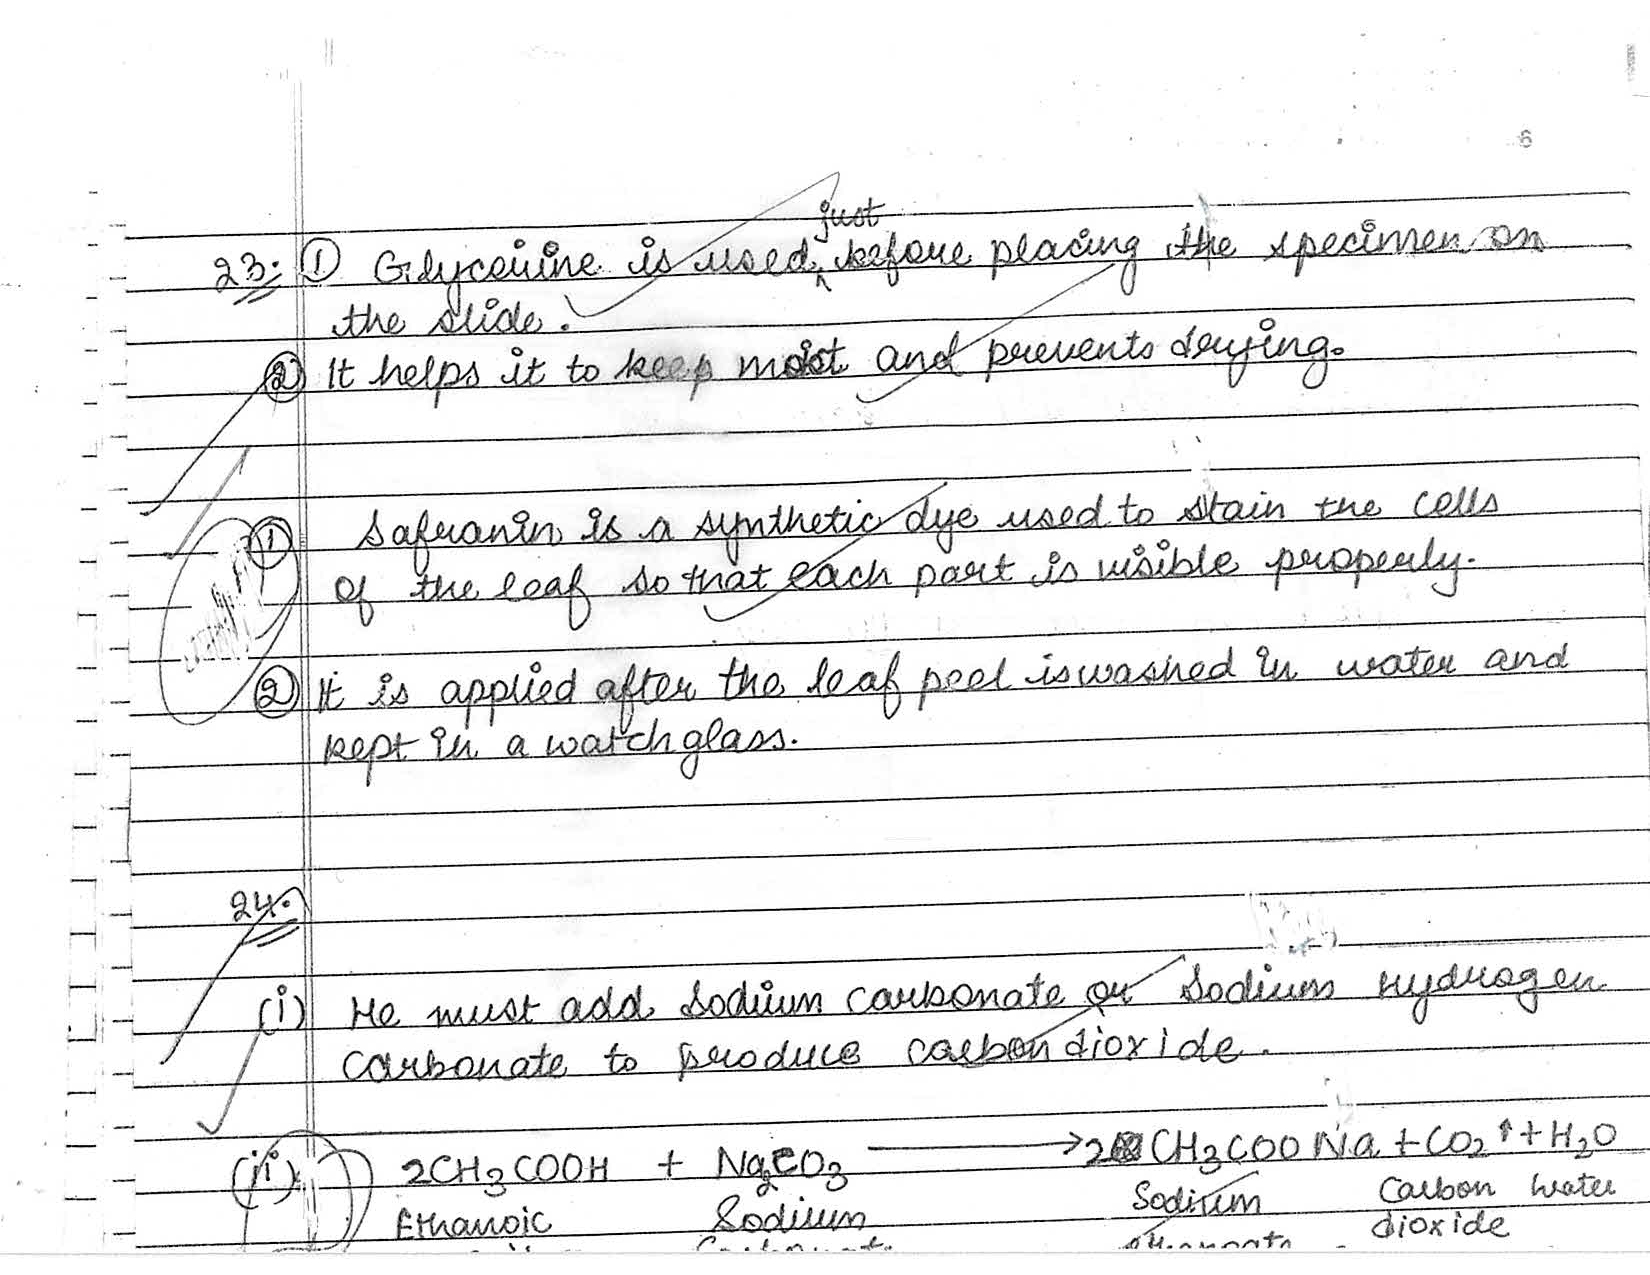 6
just
23. ① Glycerine is used ‸ before placing the specimen on
the slide.
② It helps it to keep moist and prevents drying.
① Safranin is a synthetic dye used to stain the cells
of the leaf so that each part is visible properly.
② It is applied after the leaf peel is washed in water and
kept in a watch glass.
24.
(i) He must add sodium carbonate or sodium hydrogen
carbonate to produce carbon dioxide.
(ii) 2CH₃COOH + Na₂CO₃ ⟶ 2CH₃COONa + CO₂↑ + H₂O
Ethanoic Sodium Sodium Carbon water
Carbonate ethanoate dioxide